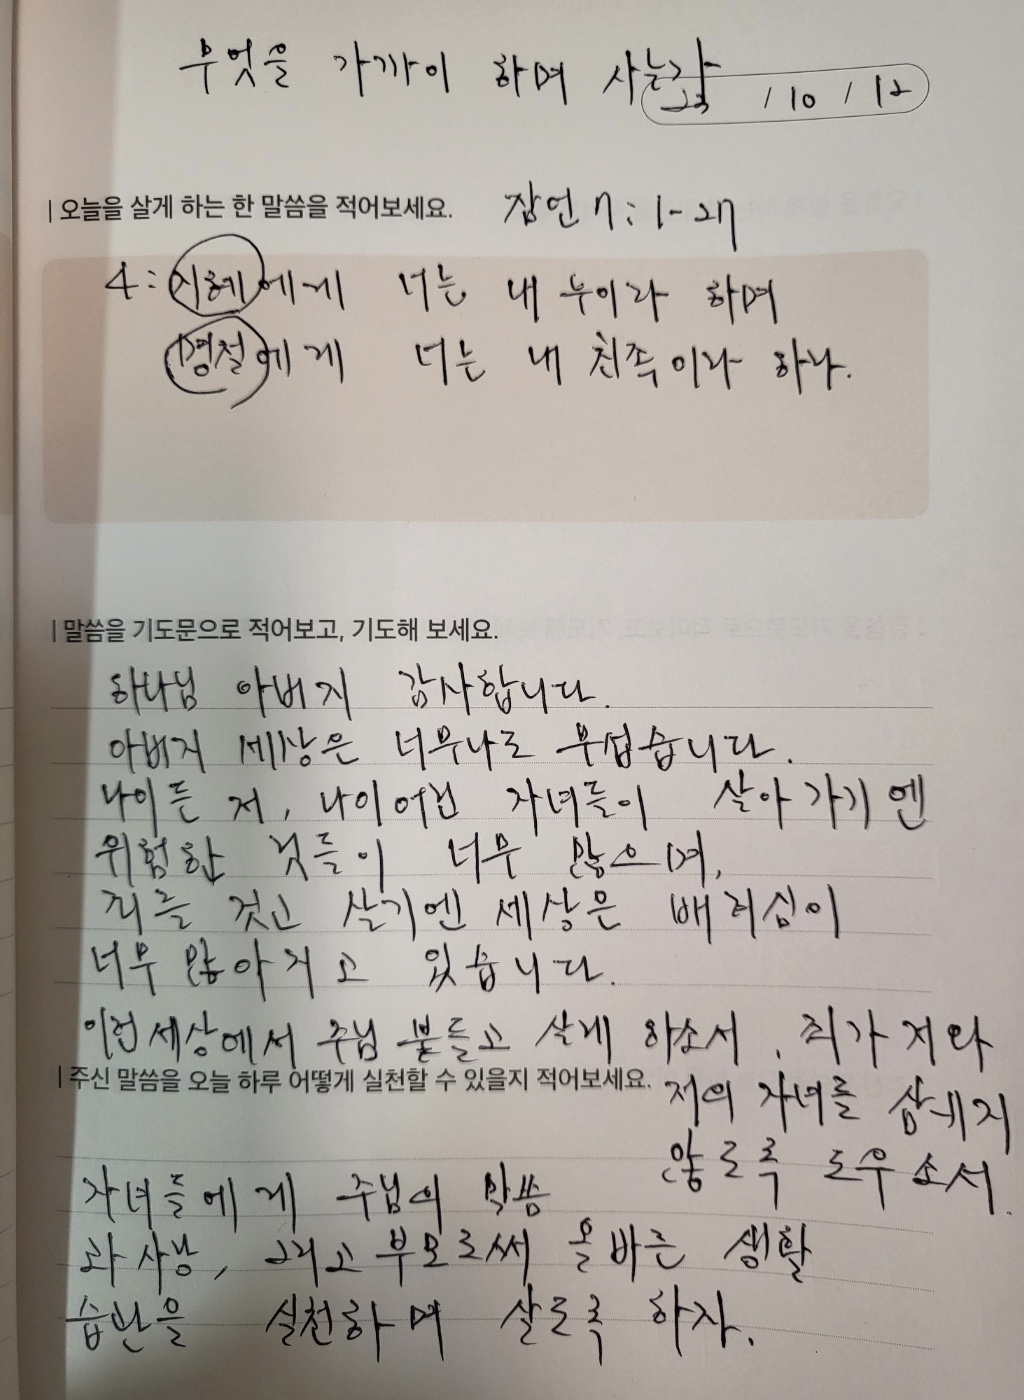 무엇을 가까이 하며 사는가
23 / 10 / 12
| 오늘을 살게 하는 한 말씀을 적어보세요. 잠언 7:1-27
4: 지혜에게 너는 내 누이라 하며
명철에게 너는 내 친족이라 하라.
| 말씀을 기도문으로 적어보고, 기도해 보세요.
하나님 아버지 감사합니다.
아버지 세상은 너무나도 무섭습니다.
나이든 저, 나이어린 자녀들이 살아가기엔
위험한 것들이 너무 많으며,
죄를 짓고 살기엔 세상은 배려심이
너무 많아지고 있습니다.
이런 세상에서 주님 붙들고 살게 하소서. 죄가 저와
저의 자녀를 삼키지
않도록 도우소서.
| 주신 말씀을 오늘 하루 어떻게 실천할 수 있을지 적어보세요.
자녀들에게 주님의 말씀
과 사랑, 그리고 부모로써 올바른 생활
습관을 실천하며 살도록 하자.